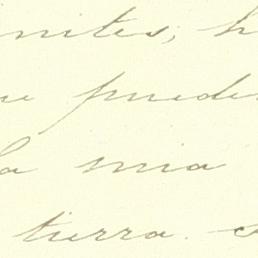 nites, h
ue puede
la mia
tierra. c